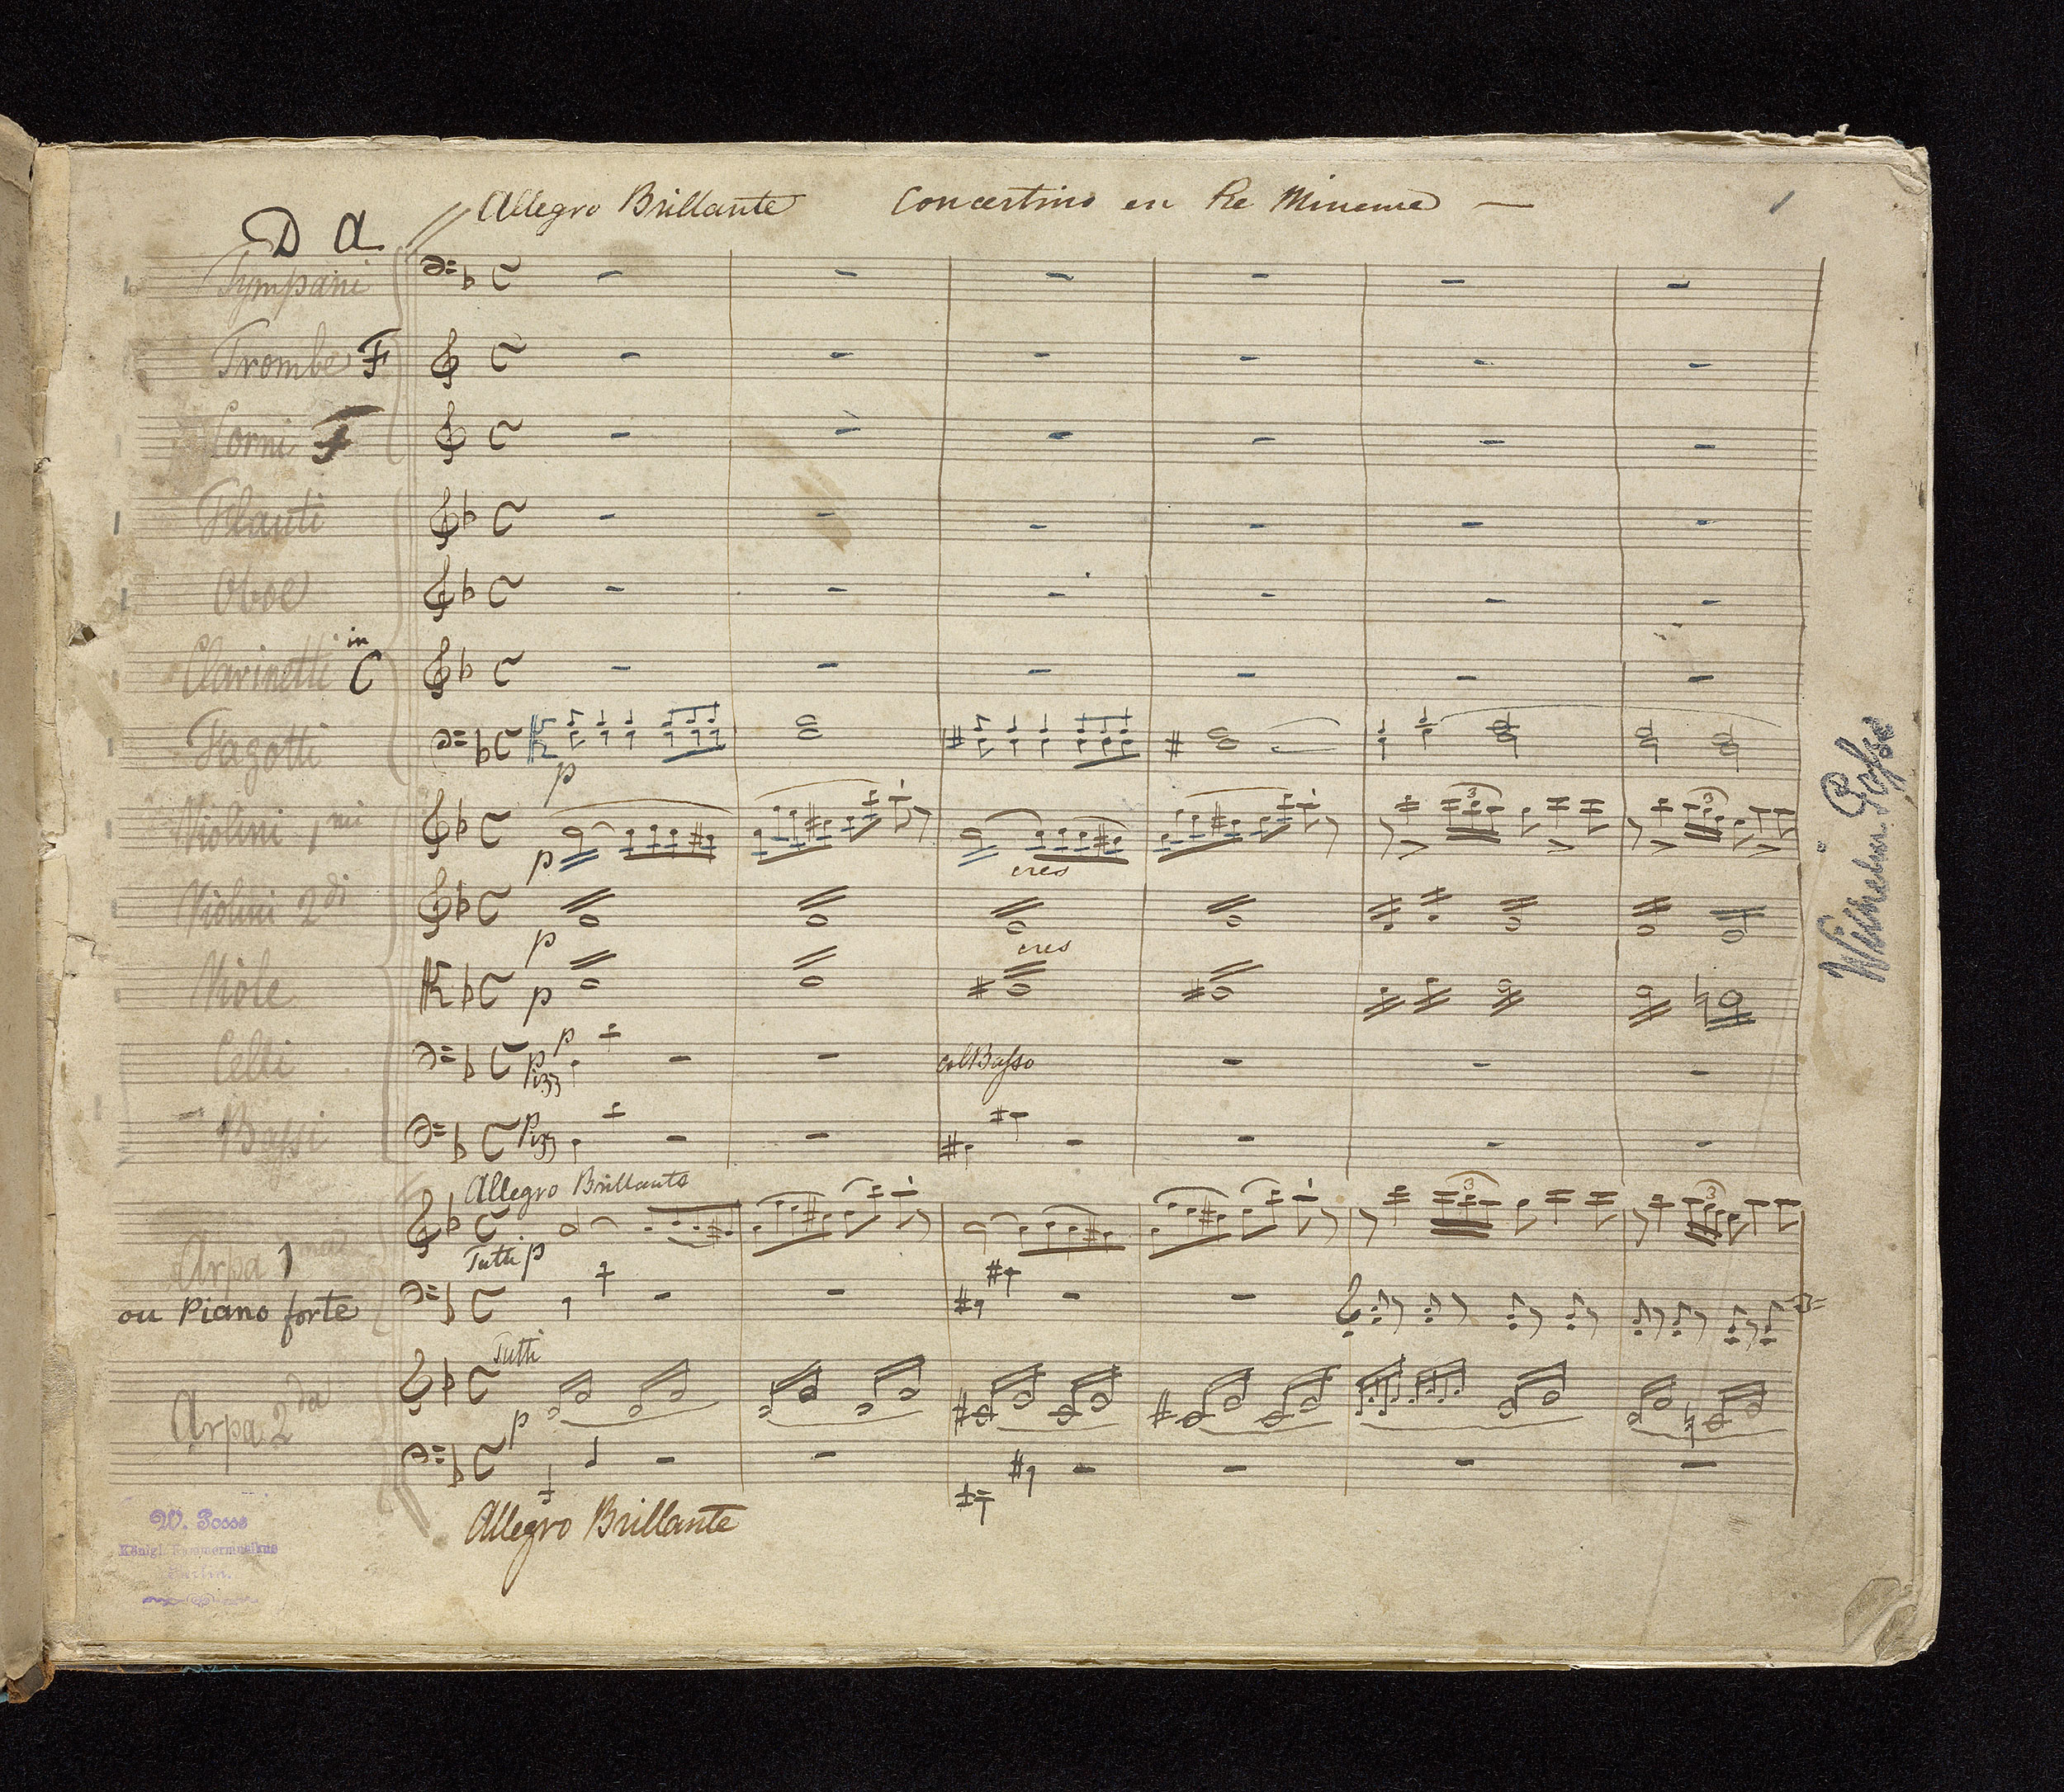 Allegro Brillante Concertino en Re Mineure
D A
Tympani
Trombe F
Corni F
Flauti
Oboe
Clarinetti in C
Fagotti
p
Violini 1mi
p
cres
3
3
Violini 2di
p
cres
Viole
p
Celli
p
Pizz
p
col Basso
Bassi
Pizz
Allegro Brillante
Arpa 1ma
Tutti p
3
3
ou Piano forte
Tutti
Arpa 2da
p
Allegro Brillante
W. Posse
Königl. Kammermusikus
Berlin.
Wilhelm Posse